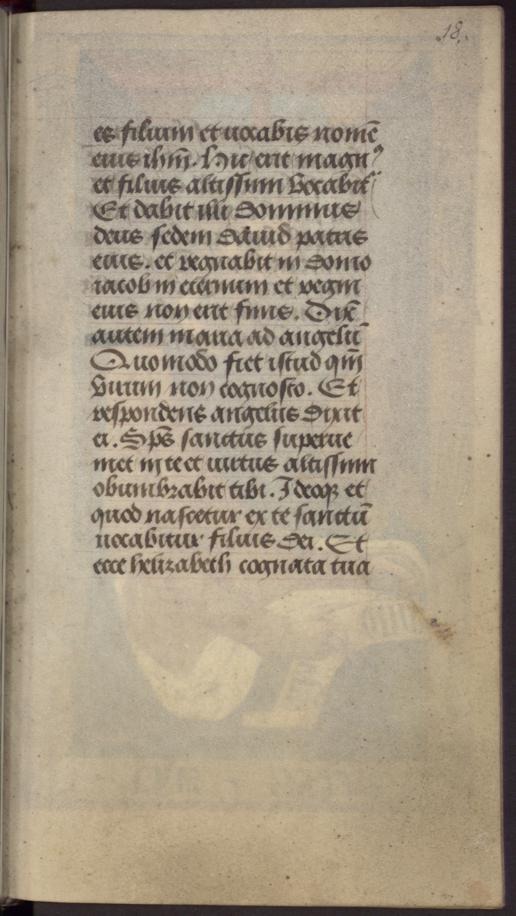 18.
es filium et vocabis nomē
eius ihm̄. Hic erit magnꝰ
et filius altissimi vocabit͛
Et dabit illi dominus
deus sedem dauid patris
eius. et regnabit in domo
iacob in eternum et regni
eius non erit finis. Dix͛
autem maria ad angelū
Quomodo fiet istud qm̄
virum non cognosco. Et
respondens angelus dixit
ei. Sp̄s sanctus superue
niet in te et uirtus altissimi
obumbrabit tibi. Ideoqꝫ et
quod nascetur ex te sanctū
uocabitur filius dei. Et
ecce helizabeth cognata tua